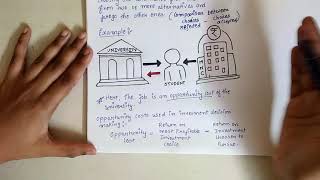 from two or more alternatives and
forego the other ones. (Comparison between
choices
rejected
accepted)
Example :-
UNIVERSITY
STUDENT
# Here, the job is an opportunity cost of the
university
opportunity costs used in investment decision
making :-
Opportunity = Return on - Return on
cost most Profitable Investment
Investment choosen to
choice Pursue.